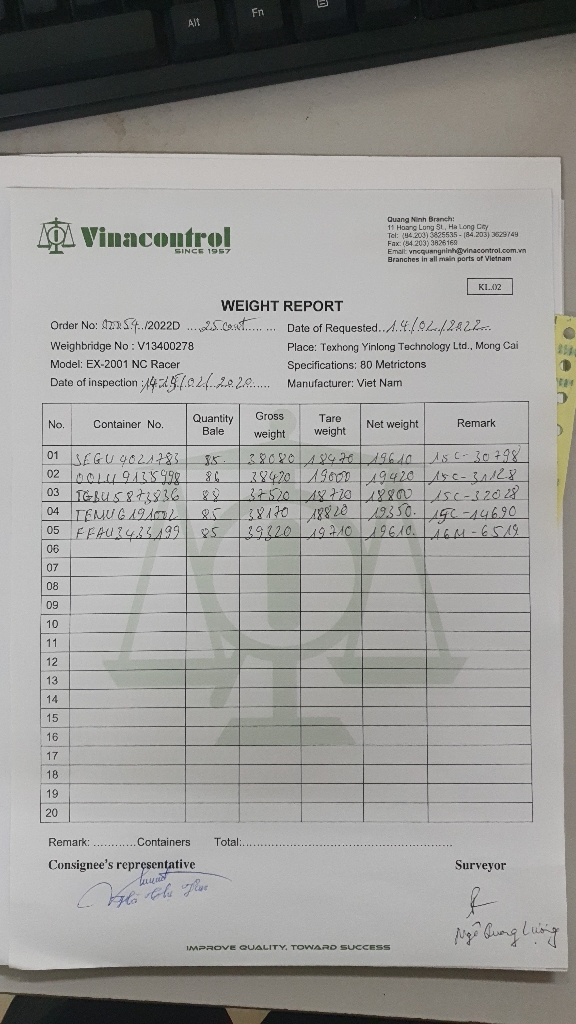 Alt
Fn
Vinacontrol
SINCE 1957
Quang Ninh Branch:
11 Hoang Long St., Ha Long City
Tel: (84.203) 3825535 - (84.203) 3629749
Fax: (84.203) 3826169
Email: vncquangninh@vinacontrol.com.vn
Branches in all main ports of Vietnam
KL.02
WEIGHT REPORT
Order No: /2022D 25 cont Date of Requested 14/02/2022
Weighbridge No : V13400278 Place: Texhong Yinlong Technology Ltd., Mong Cai
Model: EX-2001 NC Racer Specifications: 80 Metrictons
Date of inspection: 14-15/02/2020 Manufacturer: Viet Nam
No. Container No. Quantity Bale Gross weight Tare weight Net weight Remark
01 SEGU 4021783 85 38080 18470 19610 15C-30798
02 OOLU 9135998 86 38420 19000 19420 15C-31128
03 TGBU 5873836 88 37520 18720 18800 15C-32028
04 TEMU 6191002 85 38170 18820 19350 15C-14690
05 FFAU 3433199 85 39320 19710 19610 16M-6519
06
07
08
09
10
11
12
13
14
15
16
17
18
19
20
Remark: ............Containers Total:
Consignee's representative Surveyor
Ngô Quang Lượng
IMPROVE QUALITY, TOWARD SUCCESS